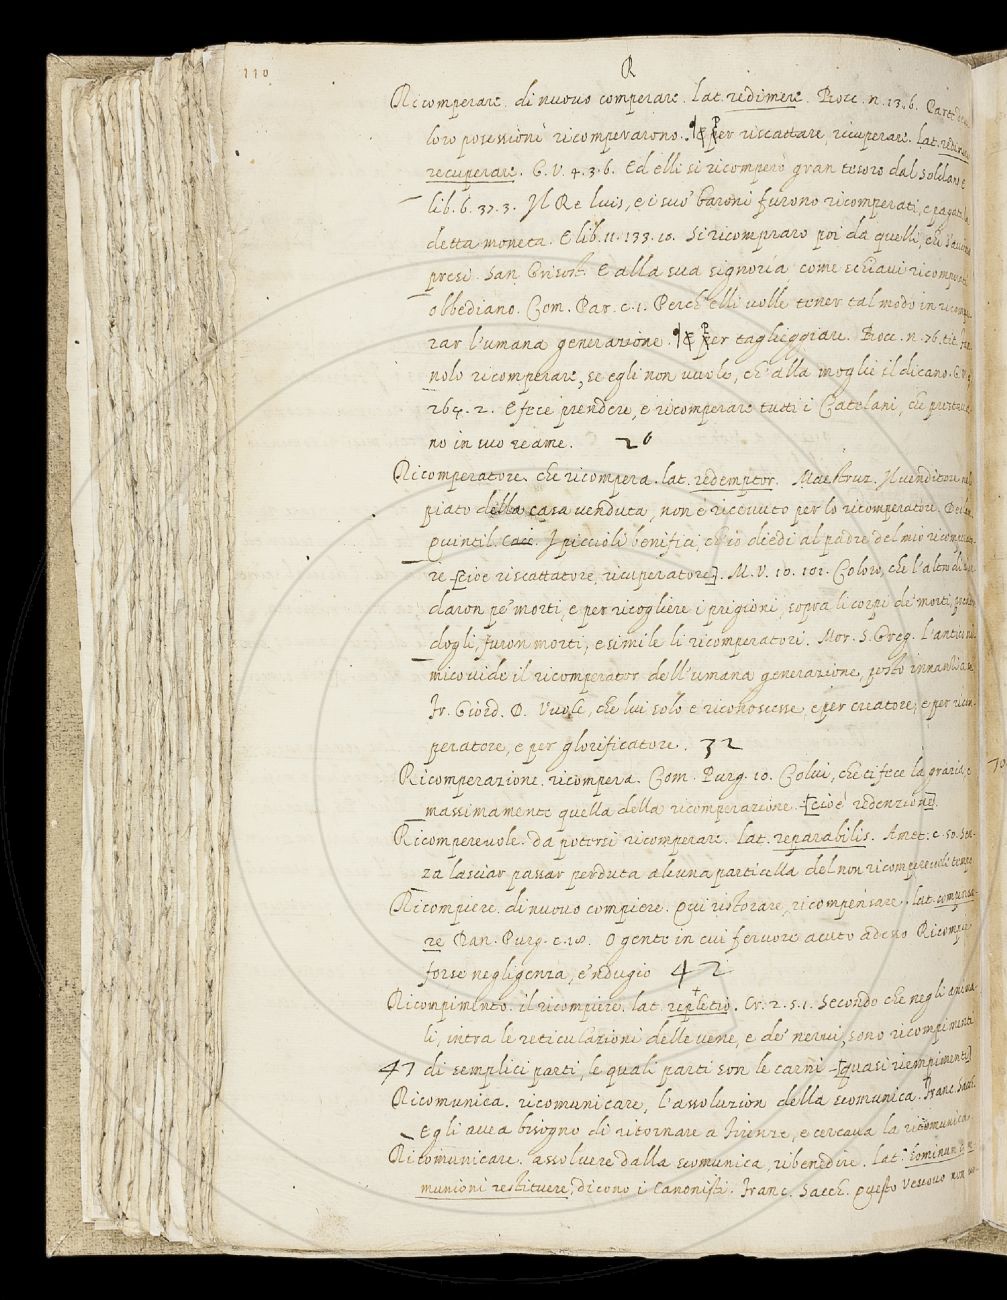 110
R
Ricomperare. di nuovo comperare. Lat. redimere. Bocc. n. 13. 6.
loro posessioni ricomperarono. § Per riscattare, ricuperare. Lat.
recuperare. G. V. 4. 3. 6. Ed elli si ricomperò gran tesoro dal Soldano
lib. 6. 37. 3. Il Re Luis, e i suo' baroni furono ricomperati, e pagat
detta moneta. E lib. 11. 133. 10. Si ricompraro poi da quelli, che
presi. San Grisost. E alla sua signoria come schiavi ricomperati
obbediano. Com. Par. c. 1. Perch' elli volle tener tal modo in
rar l'umana generazione. § Per taglieggiare. Bocc. n. 76. tit.
nolo ricomperare, se egli non vuole, ch' alla moglie il dicano. G. V.
264. 2. E fece prendere, e ricomperare tutti i Catelani, che
no in suo reame. 26
Ricomperatore. che ricompera. lat. redemptor. Maestruz. Il venditore nel
piato della casa venduta, non è ricevuto per lo ricomperatore.
Quintil. Cacc. I piccioli benifici, ch' io diedi al padre del mio
re [cioè riscattatore, ricuperatore]. M. V. 10. 101. Coloro, che l'altro dì
daron pe' morti, e per ricogliere i prigioni, sopra li corpi de' morti,
dogli, furon morti, e simile li ricomperatori. Mor. S. Greg. L'antico
mico vide il ricomperator dell'umana generazione, posto innanzi
Fr. Giord. D. Vuole, che lui solo e riconoscesse, e per creatore, e per
peratore, e per glorificatore. 32
Ricomperazione. ricompera. Com. Purg. 10. Colui, che ci fece la grazia, e
massimamente quella della ricomperazione [cioè redenzione].
Ricomperevole. da potersi ricomperare. Lat. reparabilis. Amet. c. 50. Sen-
za lasciar passar perduta alcuna particella del non ricomperevoli tempo
Ricompiere. di nuovo compiere. Qui ristorare, ricompensare. Lat. compensa-
re Dan. Purg. c. 18. O gente in cui fervore acuto adesso Ricompie
forse negligenza, e 'ndugio 42
Ricompimento. il ricompiere. lat. repletio. Cr. 2. 5. 1. Secondo che negli anima-
li, intra le reticulazioni delle vene, e de' nervi, sono ricompimenti
47 di semplici parti, le quali parti son le carni [quasi riempimenti]
Ricomunica. ricomunicare, l'assoluzion della scomunica. Franc. Sacch.
Egli avea bisogno di ritornare a Firenze, e cercava la ricomunica.
Ricomunicare. assolvere dalla scomunica, ribenedire. Lat.
munioni restituere, dicono i Canonisti. Franc. Sacch. Questo Vescovo non